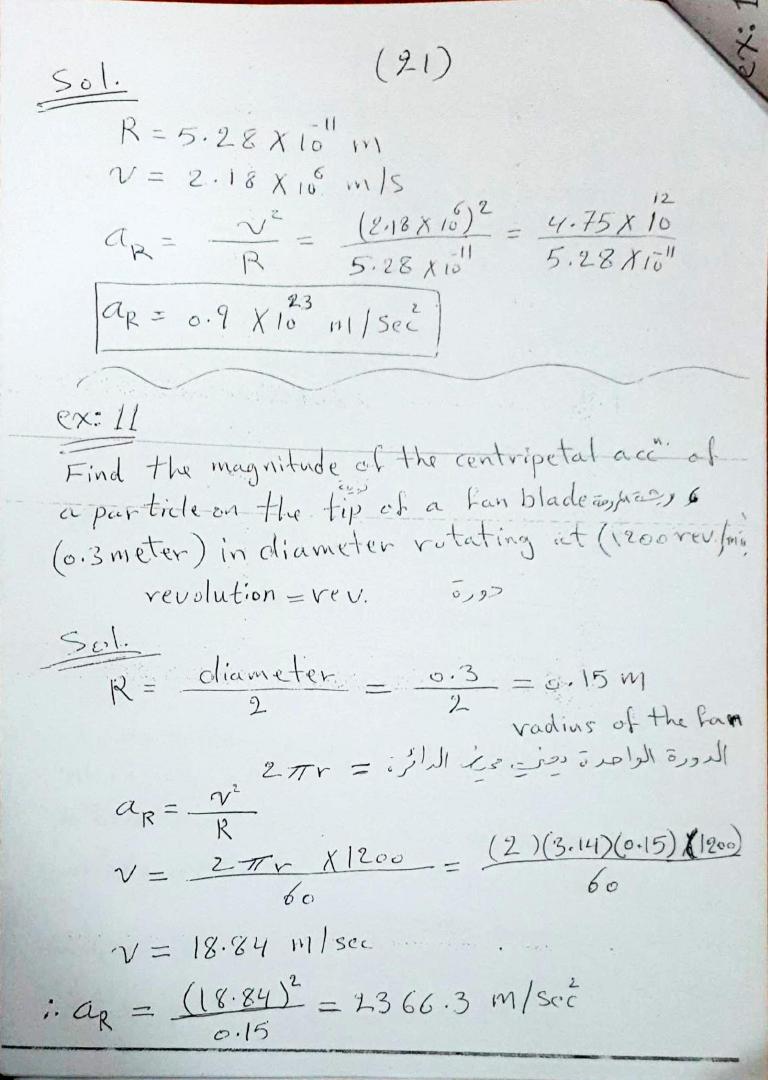 ex: 1
(21)
Sol.
R = 5.28 X 10⁻¹¹ m
v = 2.18 X 10⁶ m/s
aR = v²/R = (2.18 X 10⁶)²/5.28 X 10⁻¹¹ = 4.75 X 10¹²/5.28 X 10⁻¹¹
aR = 0.9 X 10²³ m/sec²
ex: 11
Find the magnitude of the centripetal accⁿ. of
a particle on the tip of a fan blade
(0.3 meter) in diameter rotating at (1200 rev./min
revolution = rev. دورة
Sol.
R = diameter/2 = 0.3/2 = 0.15 m
radius of the fan
2πr = الدورة الواحدة محيط الدائرة
aR = v²/R
v = 2πr X 1200/60 = (2)(3.14)(0.15)X(1200)/60
v = 18.84 m/sec
∴ aR = (18.84)²/0.15 = 2366.3 m/sec²